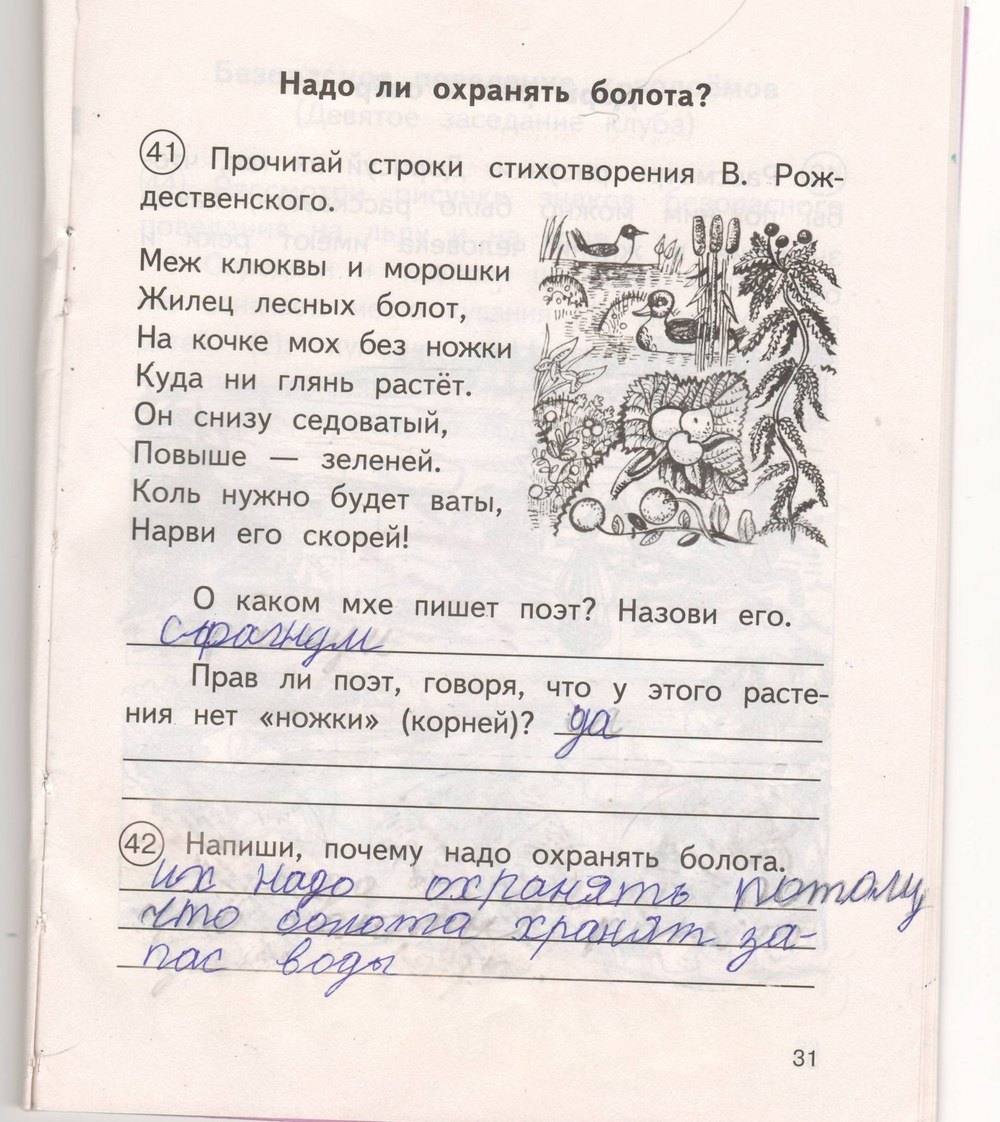 Надо ли охранять болота?
41 Прочитай строки стихотворения В. Рож-
дественского.
Меж клюквы и морошки
Жилец лесных болот,
На кочке мох без ножки
Куда ни глянь растёт.
Он снизу седоватый,
Повыше — зеленей.
Коль нужно будет ваты,
Нарви его скорей!
О каком мхе пишет поэт? Назови его.
сфагнум
Прав ли поэт, говоря, что у этого расте-
ния нет «ножки» (корней)? да
42 Напиши, почему надо охранять болота.
их надо охранять потому
что болота хранят за-
пас воды
31